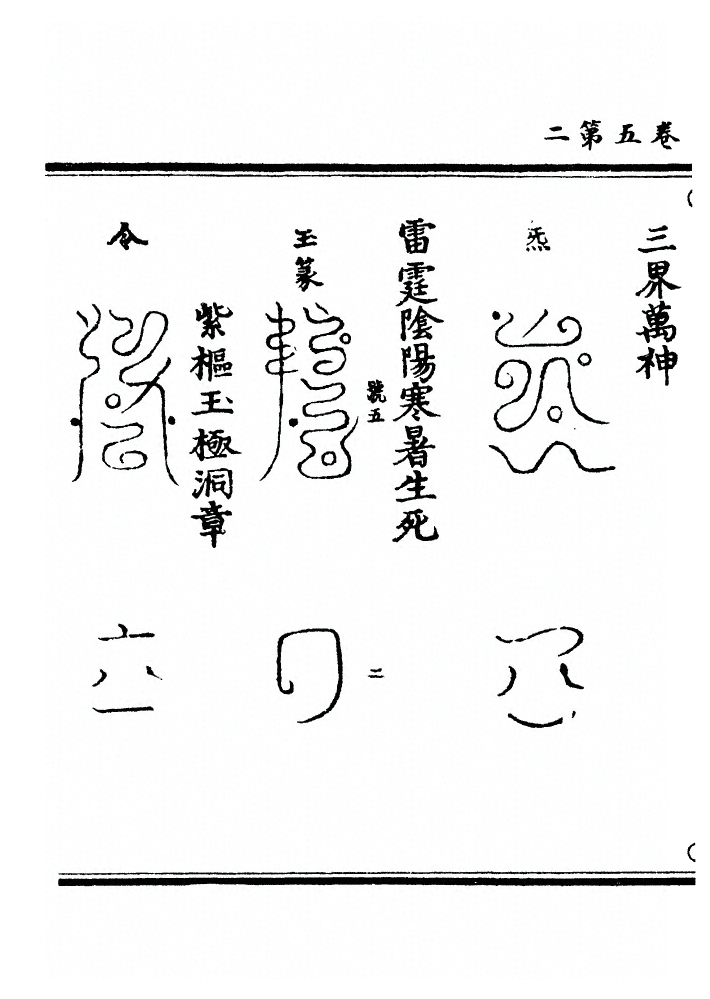 卷五第二
三界萬神
炁
雷霆陰陽寒暑生死
號五
二
玉篆
紫樞玉極洞章
令